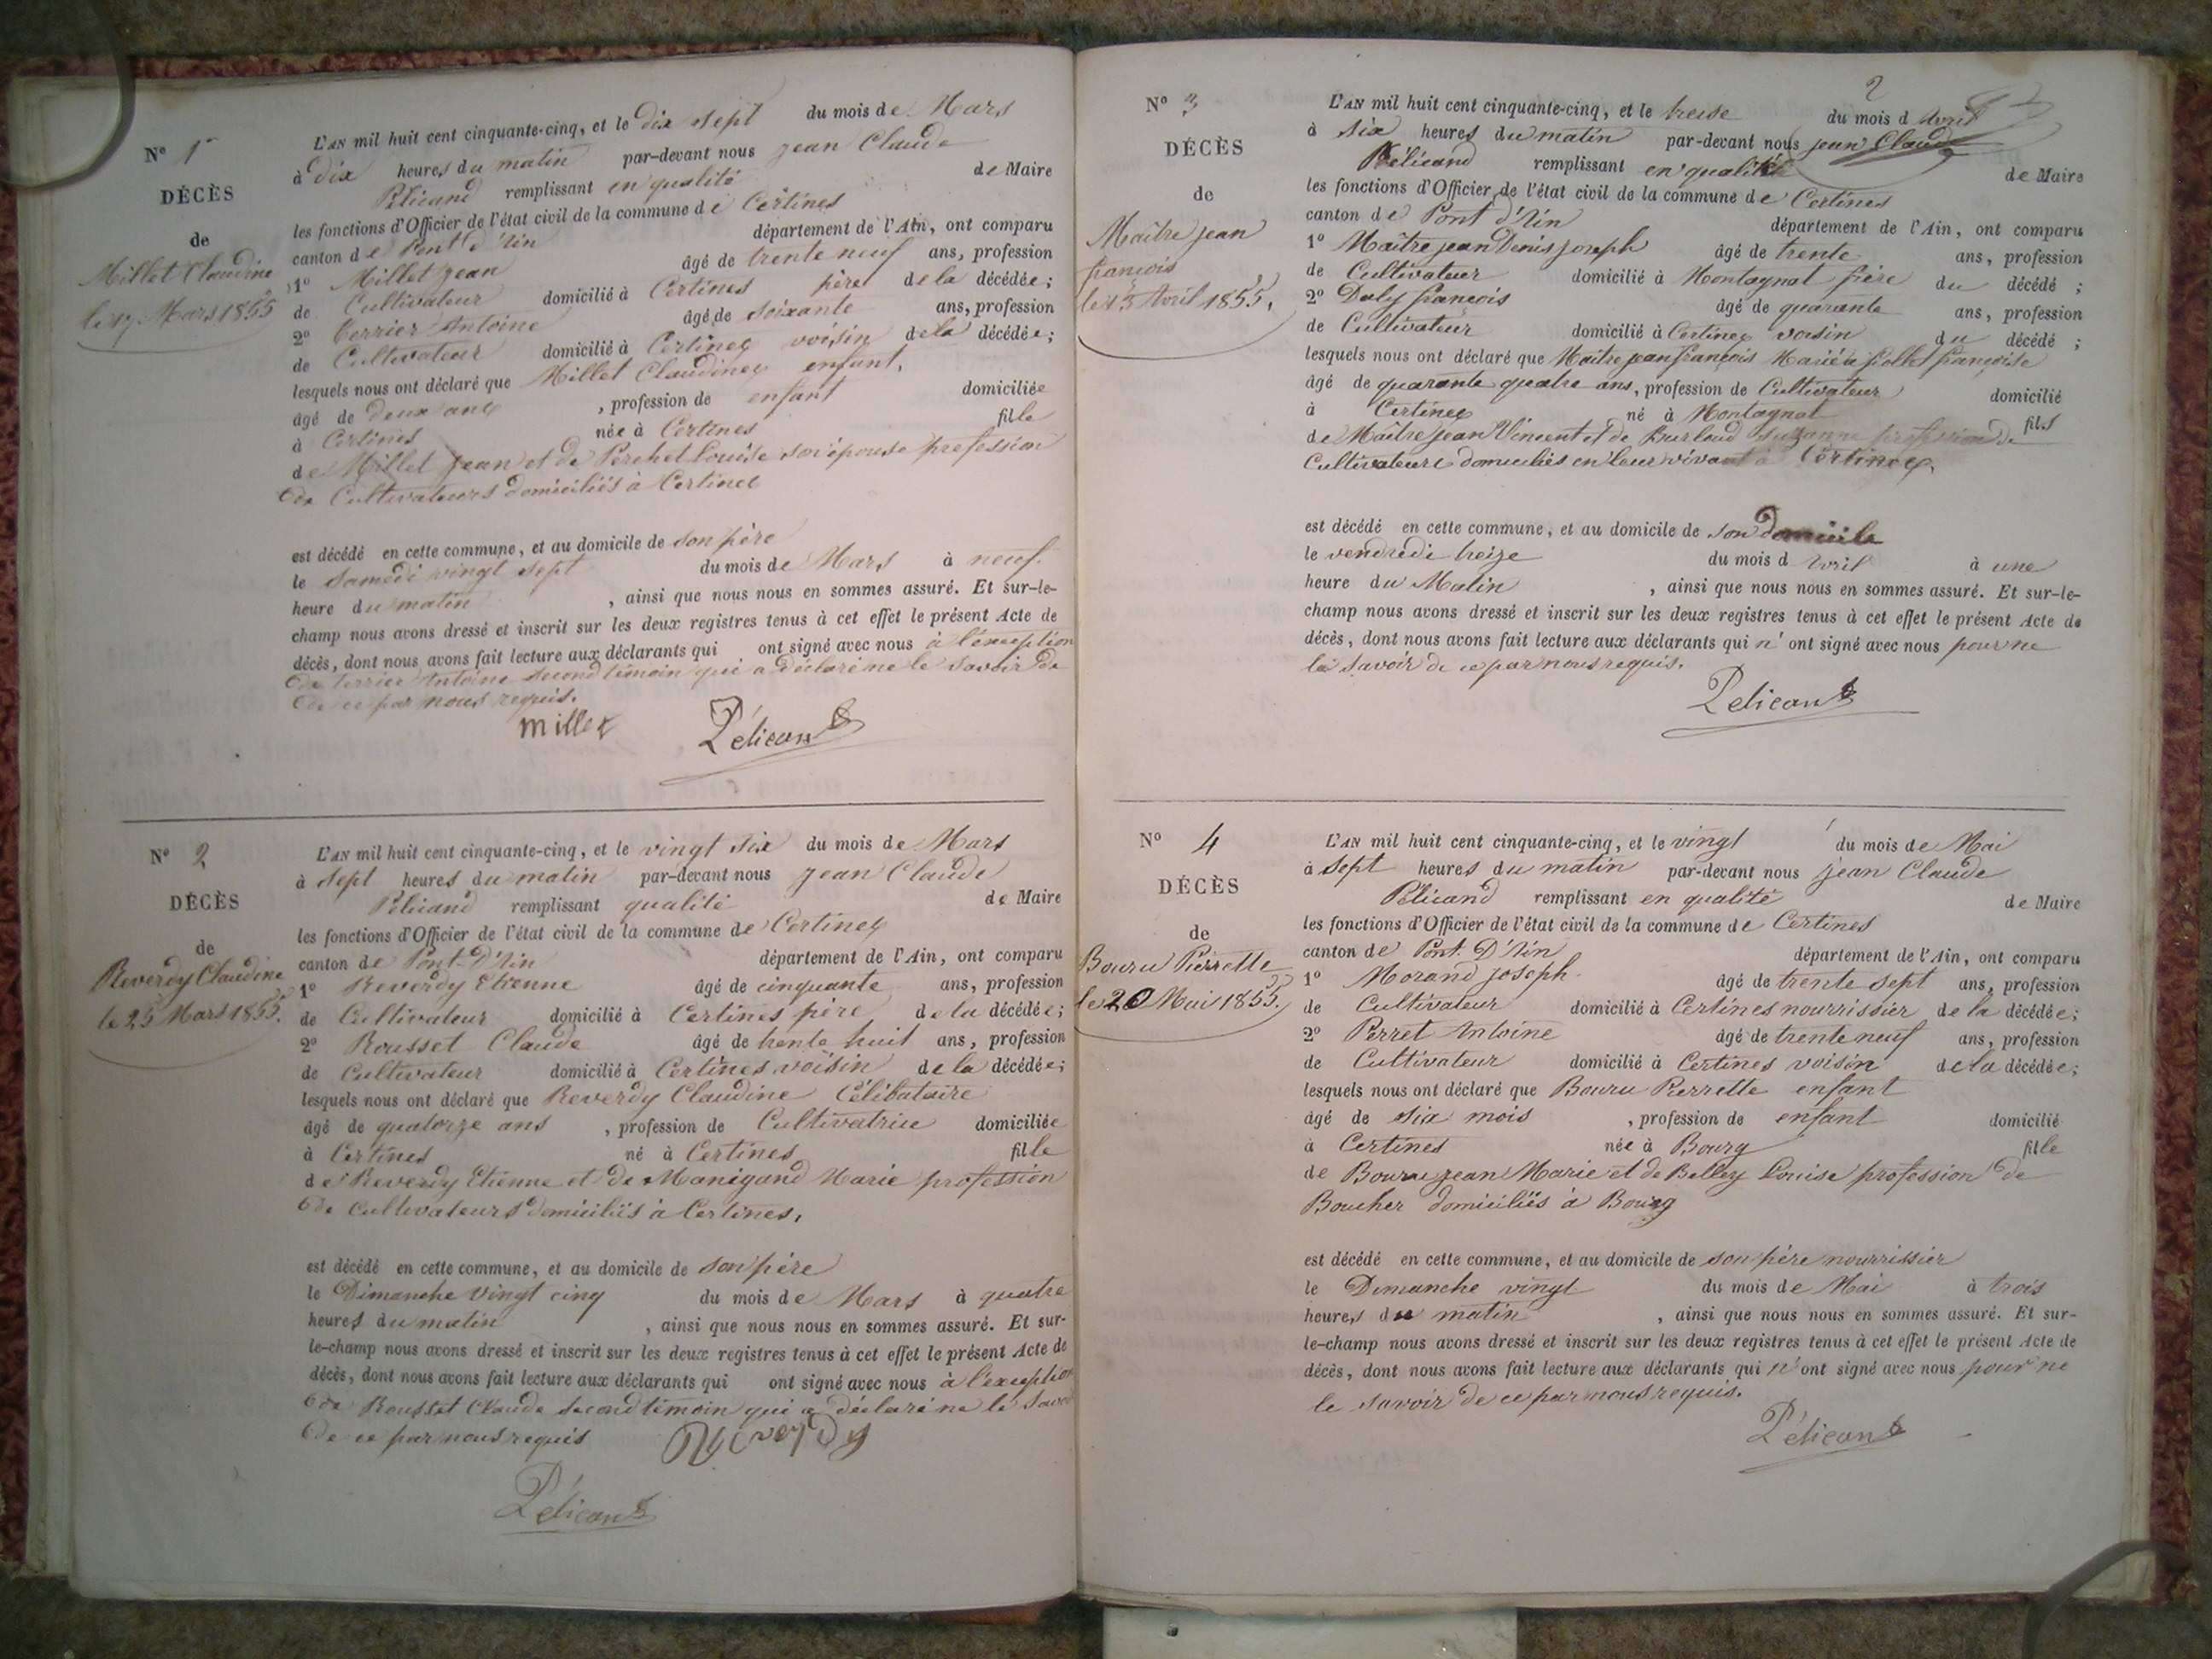 N° 1er
DÉCÈS
de
Millet Claudine
le 17 Mars 1855
L'AN mil huit cent cinquante-cinq, et le dix sept du mois de Mars
à dix heures du matin par-devant nous jean Claude
Pélicand remplissant en qualité de Maire
les fonctions d'Officier de l'état civil de la commune de Certines
canton de Pont d'Ain département de l'Ain, ont comparu
1° Millet jean âgé de trente neuf ans, profession
de Cultivateur domicilié à Certines père de la décédée;
2° Terrier Antoine âgé de soixante ans, profession
de Cultivateur domicilié à Certines voisin de la décédée;
lesquels nous ont déclaré que Millet Claudine enfant,
âgé de deux ans , profession de enfant domiciliée
à Certines née à Certines fille
de Millet Jean et de Perchet Louise son épouse profession
de Cultivateurs domiciliés à Certines
est décédé en cette commune, et au domicile de son père
le samedi vingt sept du mois de Mars à neuf
heure du matin , ainsi que nous nous en sommes assuré. Et sur-le-
champ nous avons dressé et inscrit sur les deux registres tenus à cet effet le présent Acte de
décès, dont nous avons fait lecture aux déclarants qui ont signé avec nous à l'exception
de terrier Antoine second témoin qui a déclaré ne le savoir de
de ce par nous requis.
millet Pélicand
N° 2
DÉCÈS
de
Reverdy Claudine
le 25 Mars 1855.
L'AN mil huit cent cinquante-cinq, et le vingt six du mois de Mars
à sept heures du matin par-devant nous jean Claude
Pélicand remplissant qualité de Maire
les fonctions d'Officier de l'état civil de la commune de Certines
canton de Pont-D'Ain département de l'Ain, ont comparu
1° Reverdy Etienne âgé de cinquante ans, profession
de Cultivateur domicilié à Certines père de la décédée;
2° Rousset Claude âgé de trente huit ans, profession
de Cultivateur domicilié à Certines voisin de la décédée;
lesquels nous ont déclaré que Reverdy Claudine Célibataire
âgé de quatorze ans , profession de Cultivatrice domiciliée
à Certines né à Certines fille
de Reverdy Etienne et de Manigand Marie profession
de Cultivateurs domiciliés à Certines,
est décédé en cette commune, et au domicile de son père
le Dimanche vingt cinq du mois de Mars à quatre
heures du matin , ainsi que nous nous en sommes assuré. Et sur-
le-champ nous avons dressé et inscrit sur les deux registres tenus à cet effet le présent Acte de
décès, dont nous avons fait lecture aux déclarants qui ont signé avec nous à l'exception
de Rousset Claude second témoin qui a déclaré ne le savoir
de ce par nous requis Reverdy
Pélicand
2
N° 3
DÉCÈS
de
Maître jean
françois
le 13 Avril 1855.
L'AN mil huit cent cinquante-cinq, et le treise du mois d Avril
à six heures du matin par-devant nous jean Claude
Pélicand remplissant en qualité de Maire
les fonctions d'Officier de l'état civil de la commune de Certines
canton de Pont d'Ain département de l'Ain, ont comparu
1° Maître jean Denis joseph âgé de trente ans, profession
de Cultivateur domicilié à Montagnat frère du décédé ;
2° Daly françois âgé de quarante ans, profession
de Cultivateur domicilié à Certines voisin du décédé ;
lesquels nous ont déclaré que Maître jean françois Marié à follet françoise
âgé de quarante quatre ans, profession de Cultivateur domicilié
à Certines né à Montagnat fils
de Maître jean Vincent et de Burloud Suzanne profession de
Cultivateurs domiciliés en leur vivant à Certines,
est décédé en cette commune, et au domicile de son domicile
le vendredi treize du mois d Avril à une
heure du Matin , ainsi que nous nous en sommes assuré. Et sur-le-
champ nous avons dressé et inscrit sur les deux registres tenus à cet effet le présent Acte de
décès, dont nous avons fait lecture aux déclarants qui n'ont signé avec nous pour ne
le savoir de ce par nous requis.
Pelicand
N° 4
DÉCÈS
de
Bouru Pierrette
le 20 Mai 1855.
L'AN mil huit cent cinquante-cinq, et le vingt du mois de Mai
à sept heures du matin par-devant nous jean Claude
Pélicand remplissant en qualité de Maire
les fonctions d'Officier de l'état civil de la commune de Certines
canton de Pont. D'Ain département de l'Ain, ont comparu
1° Morand joseph âgé de trente sept ans, profession
de Cultivateur domicilié à Certines nourrissier de la décédée;
2° Perret Antoine âgé de trente neuf ans, profession
de Cultivateur domicilié à Certines voisin de la décédée;
lesquels nous ont déclaré que Bouru Pierrette enfant
âgé de six mois , profession de enfant domicilié
à Certines née à Bourg fille
de Bouru jean Marie et de Belley Louise profession de
Boucher domiciliés à Bourg
est décédé en cette commune, et au domicile de son père nourrissier
le Dimanche vingt du mois de Mai à trois
heures du matin , ainsi que nous nous en sommes assuré. Et sur-
le-champ nous avons dressé et inscrit sur les deux registres tenus à cet effet le présent Acte de
décès, dont nous avons fait lecture aux déclarants qui n'ont signé avec nous pour ne
le savoir de ce par nous requis.
Pélicand